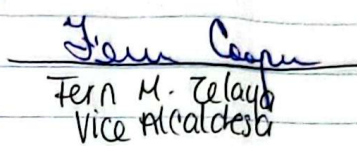 Fern Cooper
Fern M. Zelaya
Vice Alcaldesa